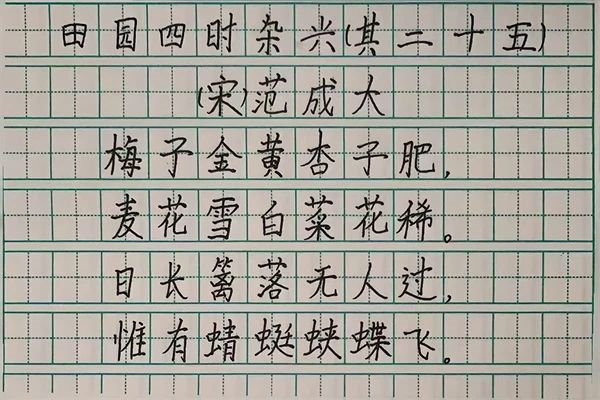 田园四时杂兴(其二十五)
(宋)范成大
梅子金黄杏子肥,
麦花雪白菜花稀。
日长篱落无人过,
惟有蜻蜓蛱蝶飞。